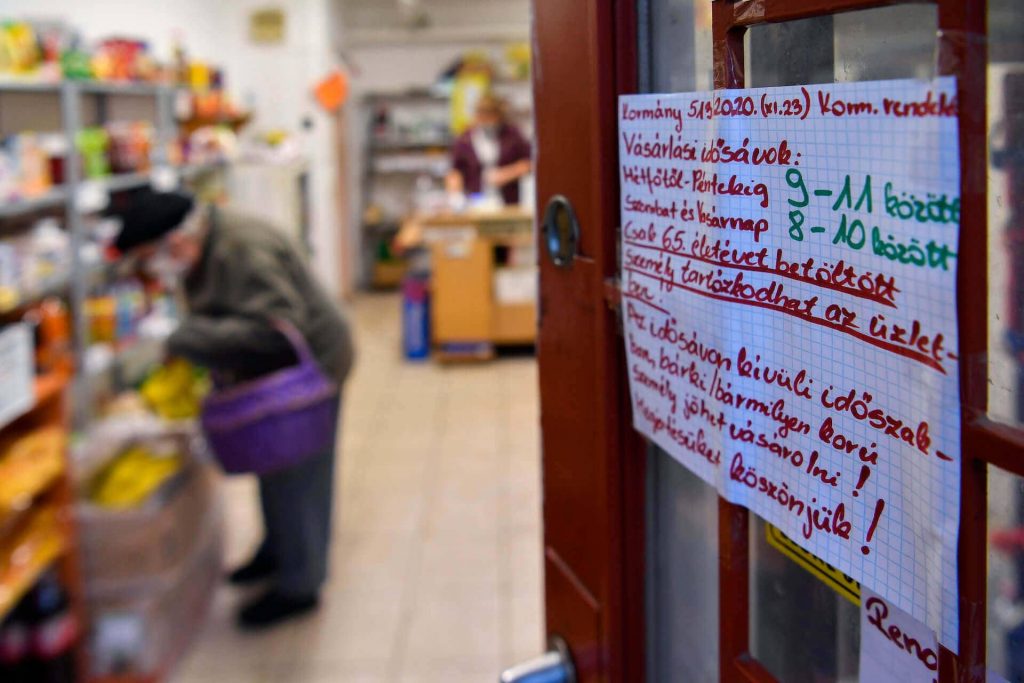 Kormány 513 2020. (XI.23) Korm. rendele
Vásárlási idősávok:
Hétfőtől-Péntekig 9-11 között
Szombat és Vasárnap 8-10 között
Csak 65. életévet betöltött
személy tartózkodhat az üzlet-
ben!
Az idősávon kívüli időszak-
ban, bárki/bármilyen korú
személy jöhet vásárolni!
Megértésüket köszönjük!
Reno